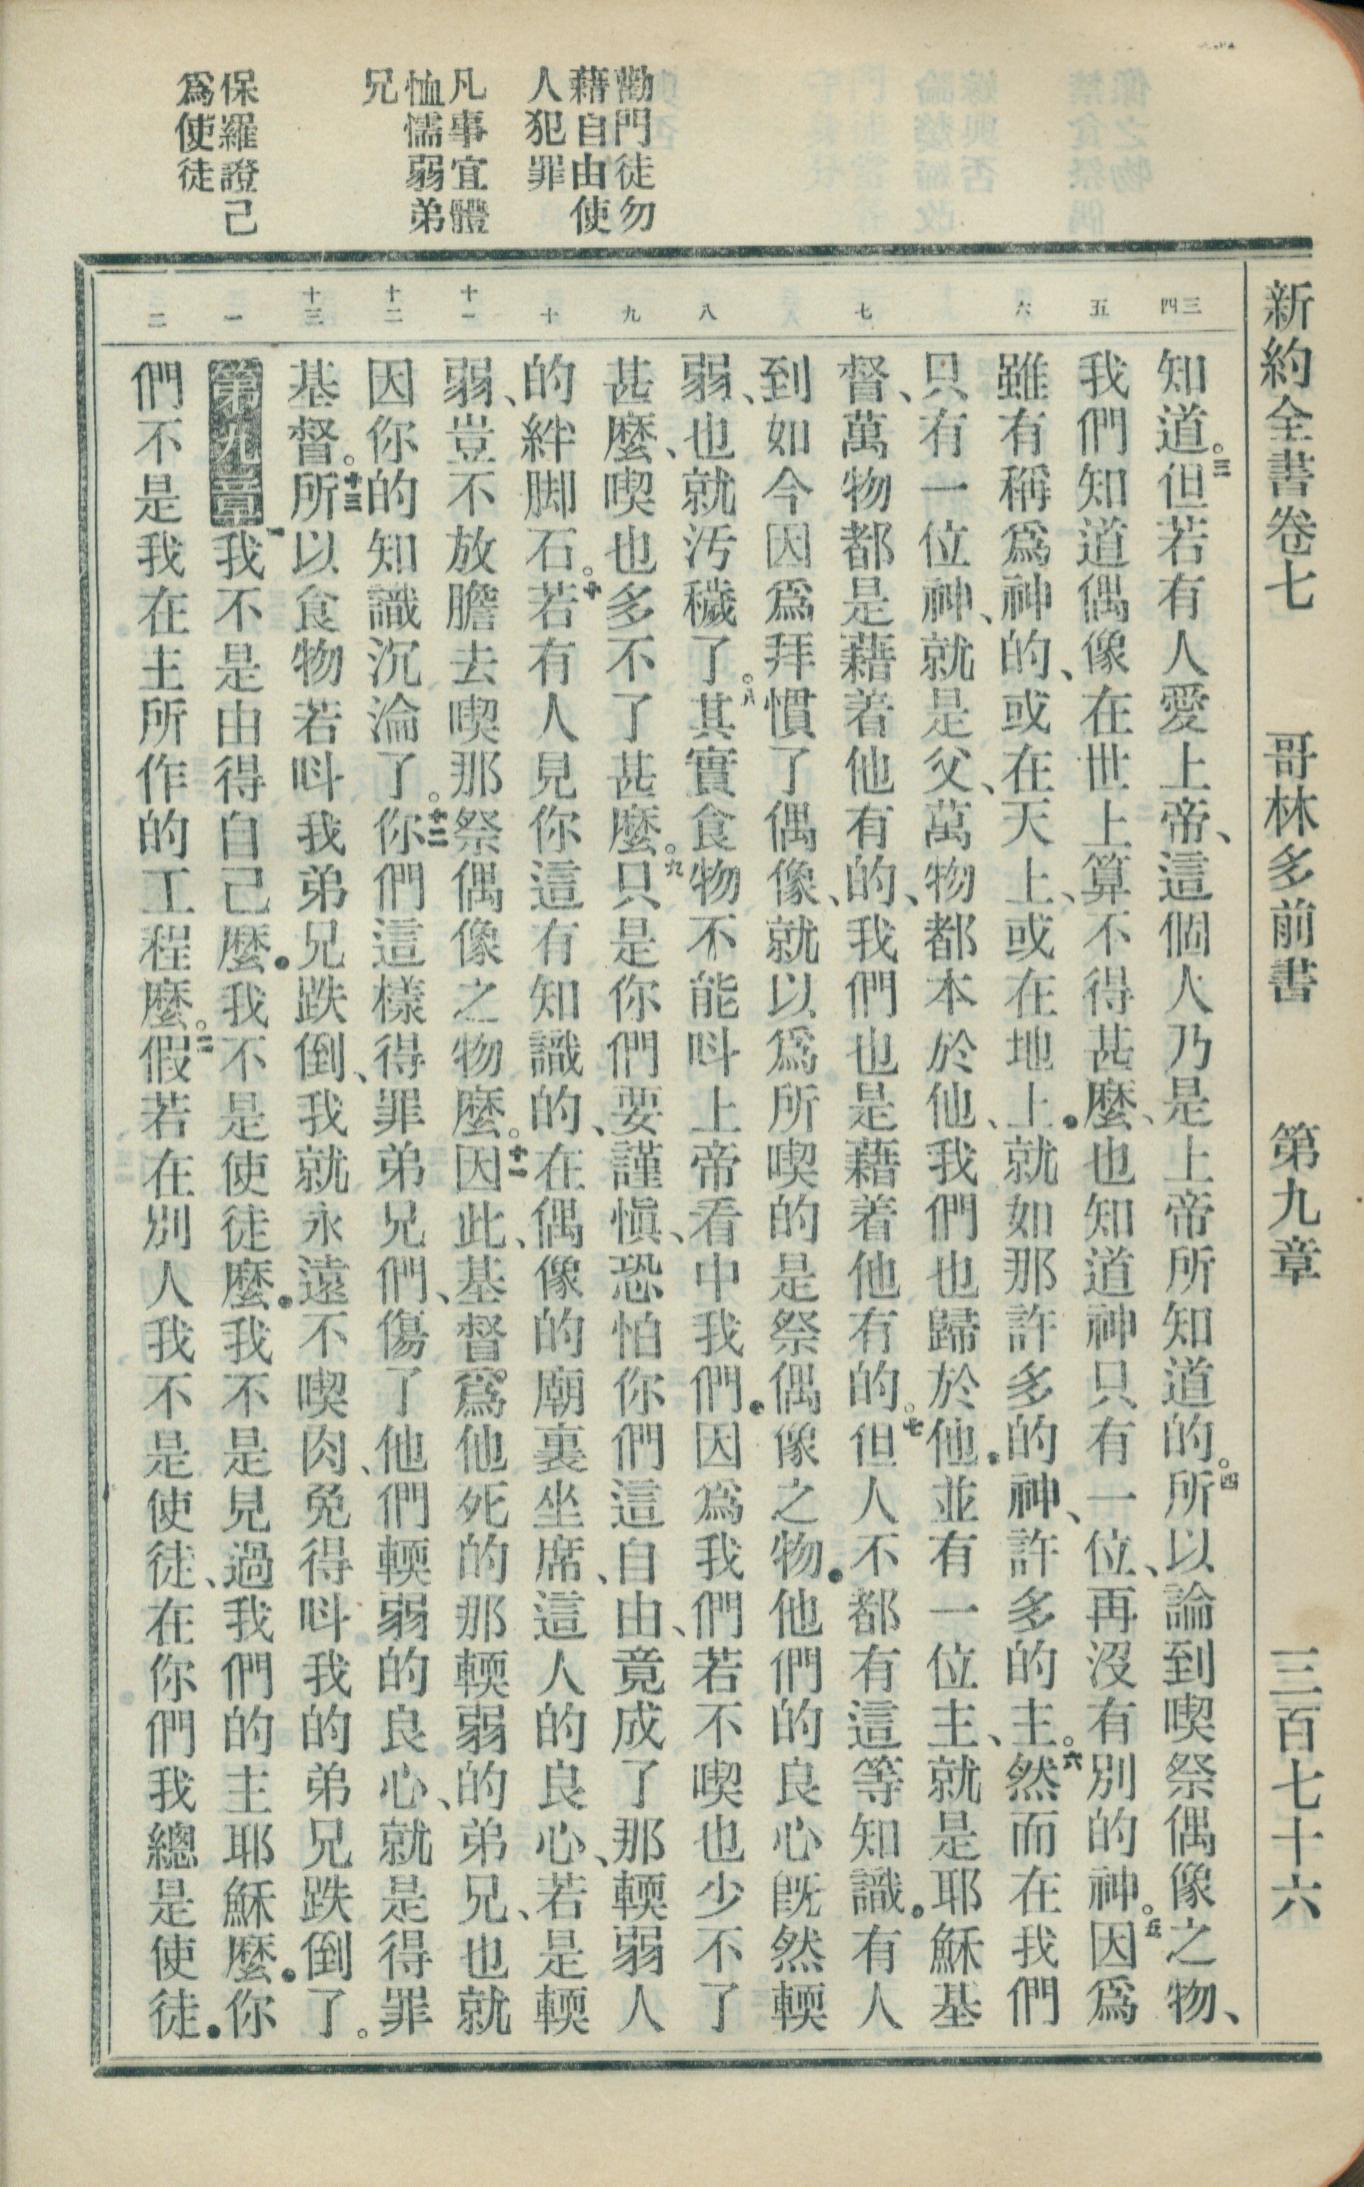 新約全書卷七 哥林多前書 第九章 三百七十六
勸門徒勿
藉自由使
人犯罪
凡事宜體
恤懦弱弟
兄
保羅證己
爲使徒
三
四
五
六
七
八
九
十
十一
十二
十三
一
二
知道。三但若有人愛上帝、這個人乃是上帝所知道的。四所以論到喫祭偶像之物、
我們知道偶像在世上算不得甚麼、也知道神只有一位、再沒有別的神。五因爲
雖有稱爲神的、或在天上、或在地上．就如那許多的神、許多的主。六然而在我們
只有一位神、就是父、萬物都本於他、我們也歸於他．並有一位主、就是耶穌基
督、萬物都是藉着他有的、我們也是藉着他有的。七但人不都有這等知識．有人
到如今因爲拜慣了偶像、就以爲所喫的是祭偶像之物．他們的良心旣然輭
弱、也就汚穢了。八其實食物不能呌上帝看中我們．因爲我們若不喫也少不了
甚麼、喫也多不了甚麼。九只是你們要謹愼、恐怕你們這自由、竟成了那輭弱人
的絆脚石。十若有人見你這有知識的、在偶像的廟裏坐席、這人的良心、若是輭
弱、豈不放膽去喫那祭偶像之物麼。十一因此、基督爲他死的那輭弱的弟兄、也就
因你的知識沉淪了。十二你們這樣得罪弟兄們、傷了他們輭弱的良心、就是得罪
基督。十三所以食物若呌我弟兄跌倒、我就永遠不喫肉、免得呌我的弟兄跌倒了。
第九章 一我不是由得自己麼．我不是使徒麼．我不是見過我們的主耶穌麼．你
們不是我在主所作的工程麼。二假若在別人我不是使徒、在你們我總是使徒．